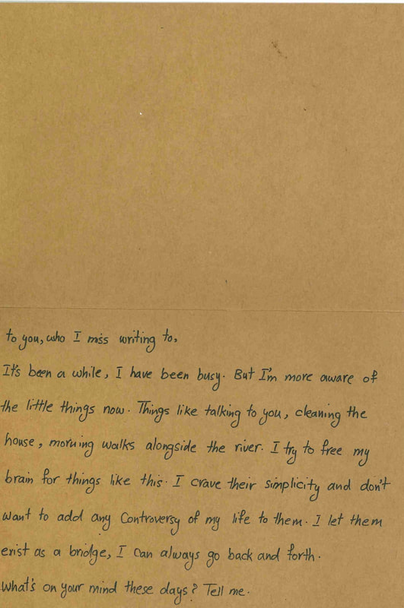 to you, who I miss writing to,
It's been a while, I have been busy. But I'm more aware of
the little things now. Things like talking to you, cleaning the
house, morning walks alongside the river. I try to free my
brain for things like this. I crave their simplicity and don't
want to add any controversy of my life to them. I let them
exist as a bridge, I can always go back and forth.
What's on your mind these days? Tell me.